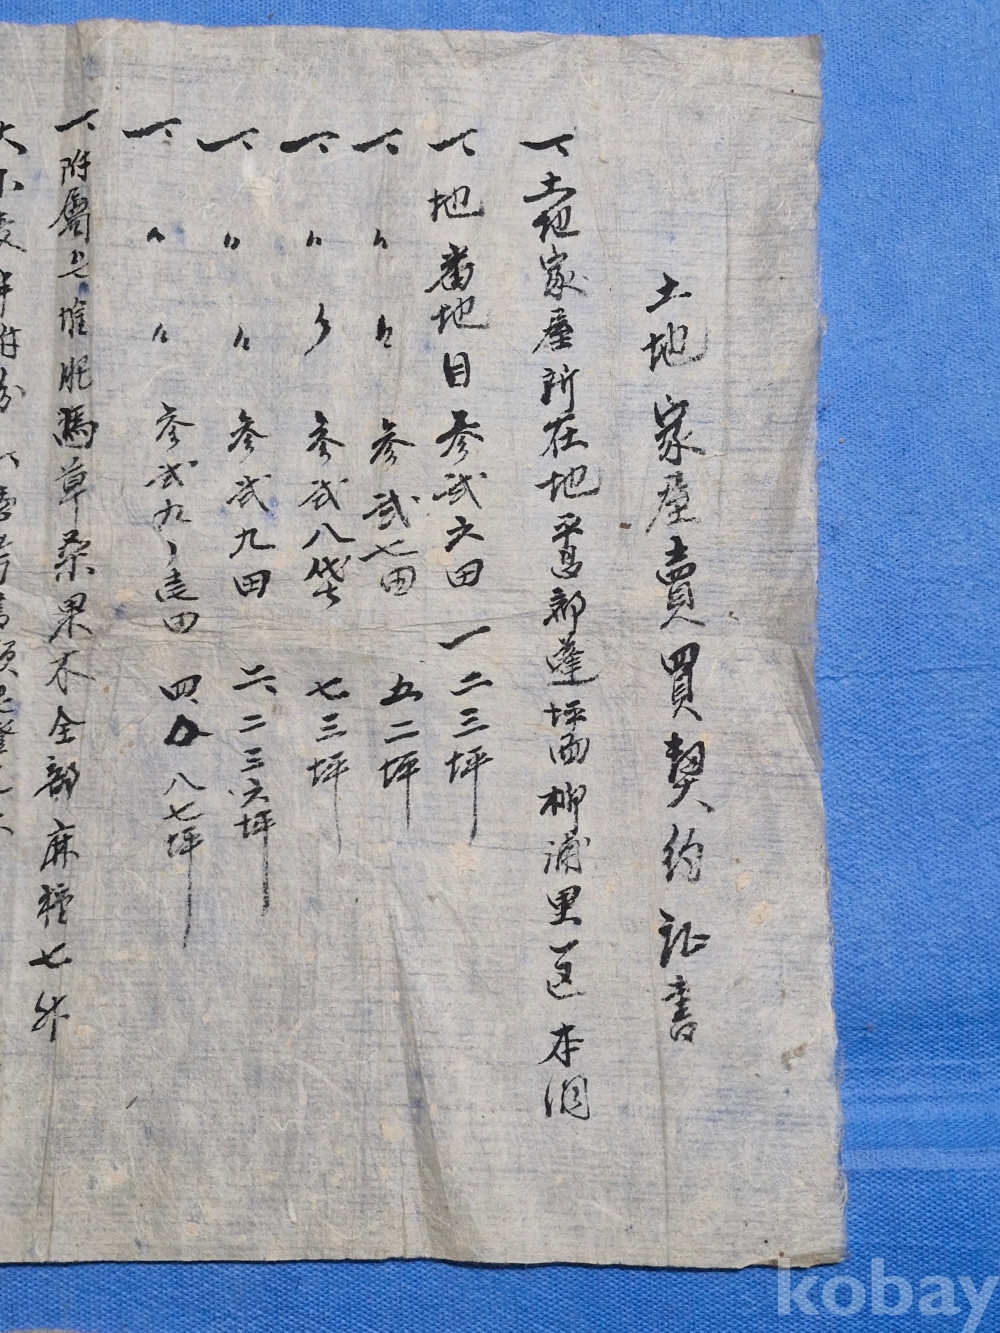 土地家屋賣買契約証書
一、土地家屋所在地 平昌郡蓬坪面柳浦里一區本洞
一、地番地目參貳六田 一二三坪
一、〃 〃 參貳七田 五二坪
一、〃 〃 參貳八垈 七三坪
一、〃 〃 參貳九田 六二三六坪
一、〃 〃 參貳九ノ壱田 四八七坪
一、附屬 堆肥馬草桑果木全部麻種七升
大小麥
kobay